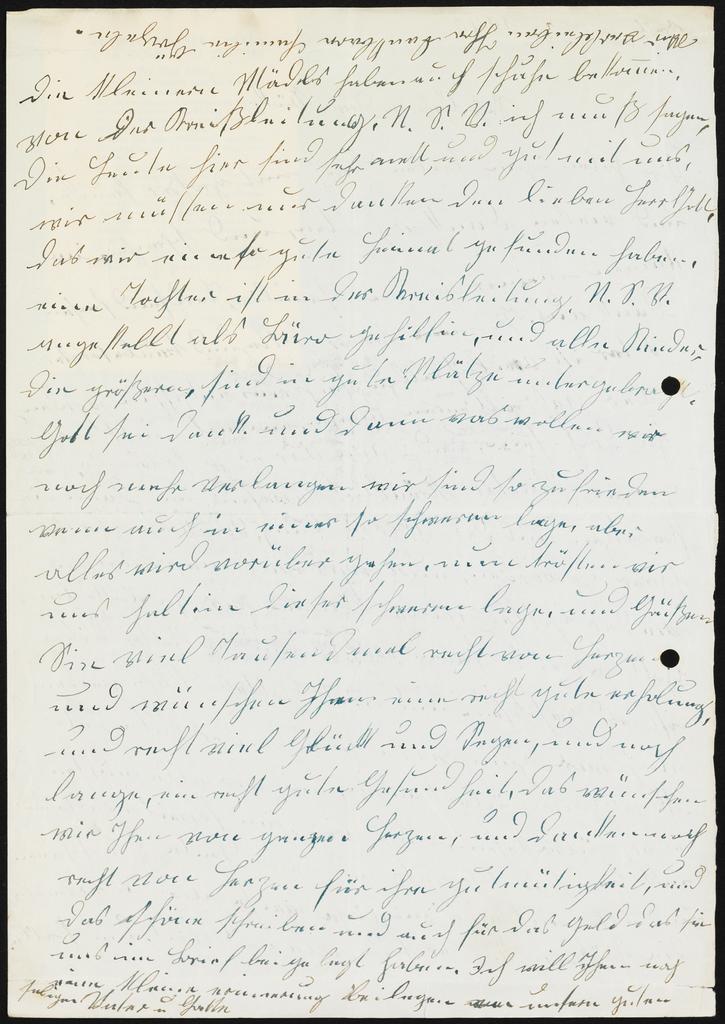 Die kleinern Mädels haben auch schuhe bekommen,
von der Kreißleitung, N. S. V. ich muß sagen,
die Leute hier sind sehr nett, und gut mit uns,
wir müssen nur danken den lieben Herrgott,
das wir eine so gute Heimat gefunden haben,
eine Tochter ist in der Kreisleitung N. S. V.
angestellt als Büro gehilfin, und alle Kinder,
die größern, sind in gute Plätze untergebracht,
Gott sei dank. und dann was wollen wir
noch mehr verlangen wir sind so zufrieden
wenn auch in einer so schweren lage, aber
alles wird vorüber gehen, nun trösten wir
uns halt in dieser schweren lage, und Grüßen
Sie viel Tausendmal recht von Herzen
und wünschen Ihnen eine recht gute erholung,
und recht viel Glück und Segen, und noch
lange, ein recht gute Gesundheit, das wünschen
wir Ihen von ganzen Herzen, und danken noch
recht von Herzen für ihre gutmütigkeit, und
das schöne schreiben und auch für das Geld das sie
uns im Brief beigelegt haben. Ich will Ihen noch
eine kleine erinnerung beilegen von unsern guten
seligen Vater u Gatte
Wir verbleiben Ihre dankbare Familie